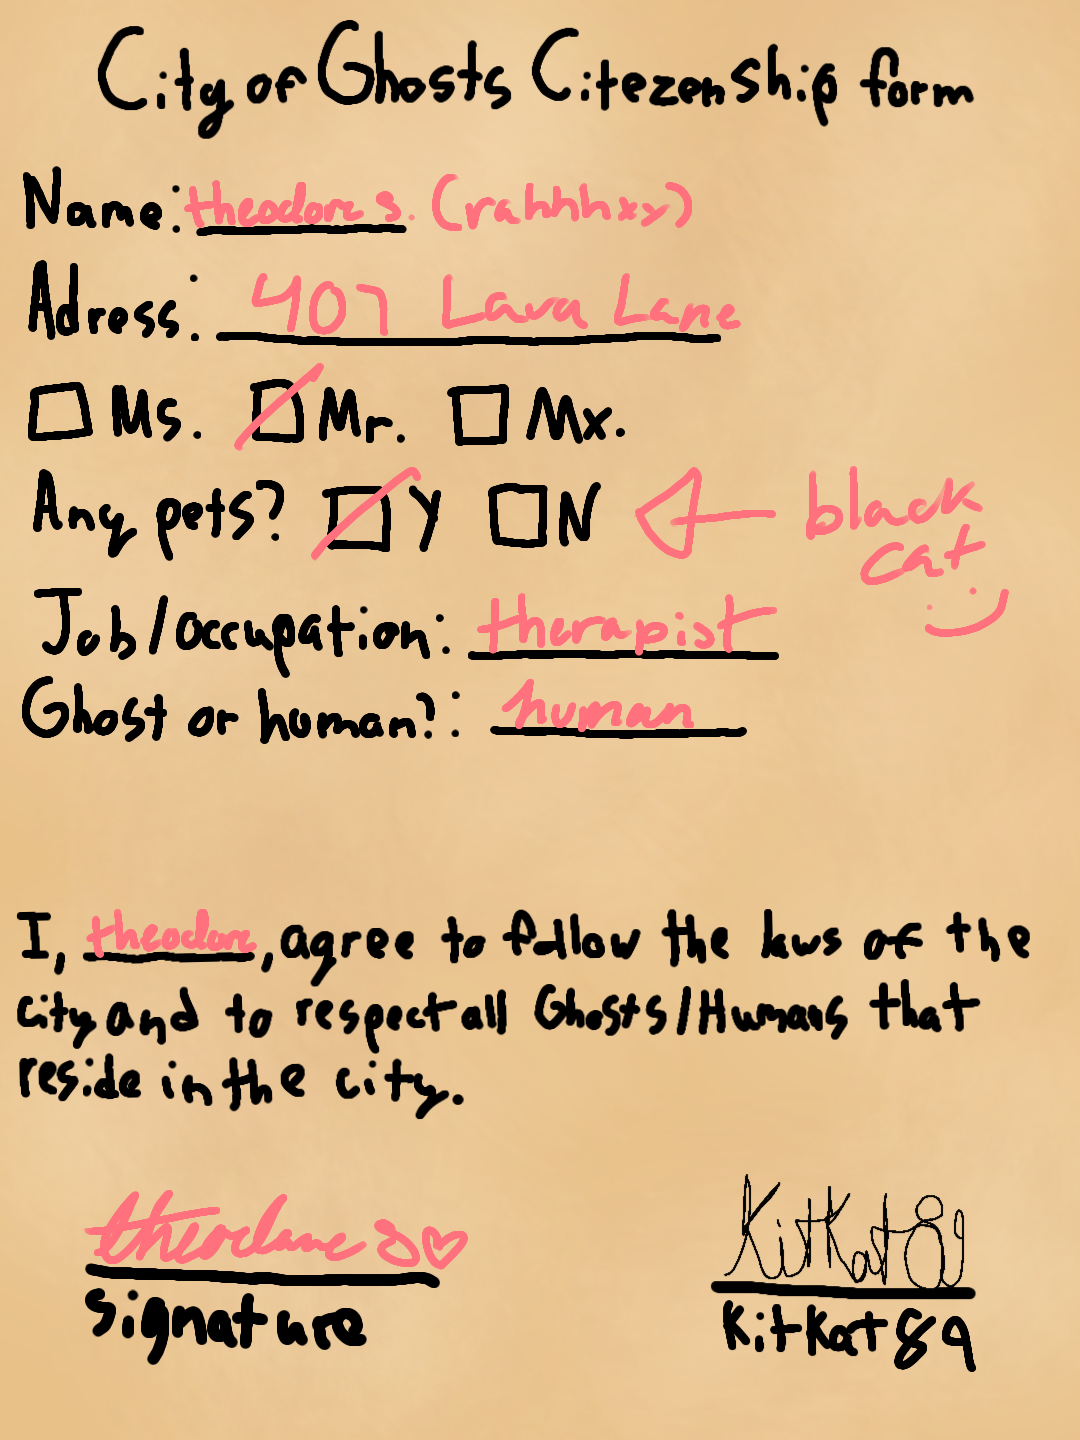 City of Ghosts Citezenship form
Name: theodore s. (rahhhxy)
Adress: 407 Lava Lane
Ms. Mr. Mx.
Any pets? Y N black
cat
Job/occupation: therapist
Ghost or human?: human
I, theodore, agree to follow the laws of the
city and to respect all Ghosts/Humans that
reside in the city.
theodore s KitKat89
signature KitKat89